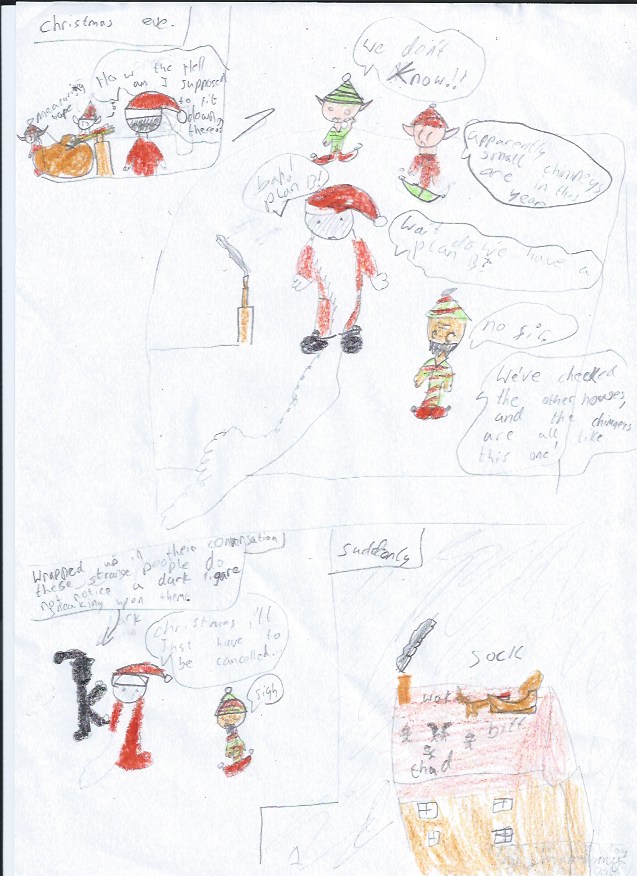 Christmas eve.
measuring
tape
How the Hell
am I supposed
to fit
down
there?
we don't
Know!!
apparently
small chimneys
are in this
year
bah!
plan B!
wait do we have a
plan B?
no sir.
We've checked
the other houses,
and the chimneys
are all like
this one!
Wrapped up in their conversation
these strange people do
not notice a dark figare
sneaking upon them.
Christmas i'll
Just have to
be cancelled..
sigh
Suddenly
SOCK
biff
thud
1